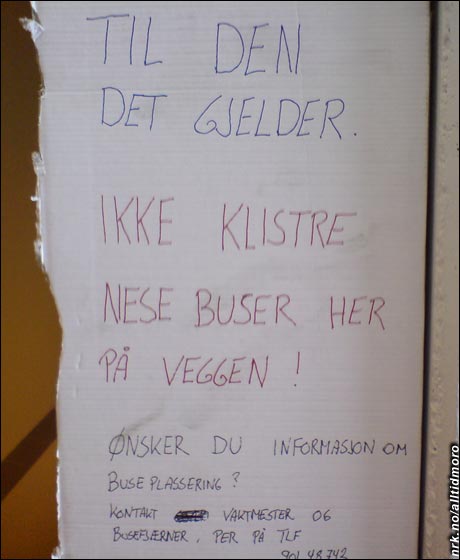 TIL DEN
DET GJELDER.
IKKE KLISTRE
NESE BUSER HER
PÅ VEGGEN !
ØNSKER DU INFORMASJON OM
BUSE PLASSERING ?
KONTAKT VAKTMESTER OG
BUSEFJERNER, PER PÅ TLF
901 48 742
ark.no/alltidmoro